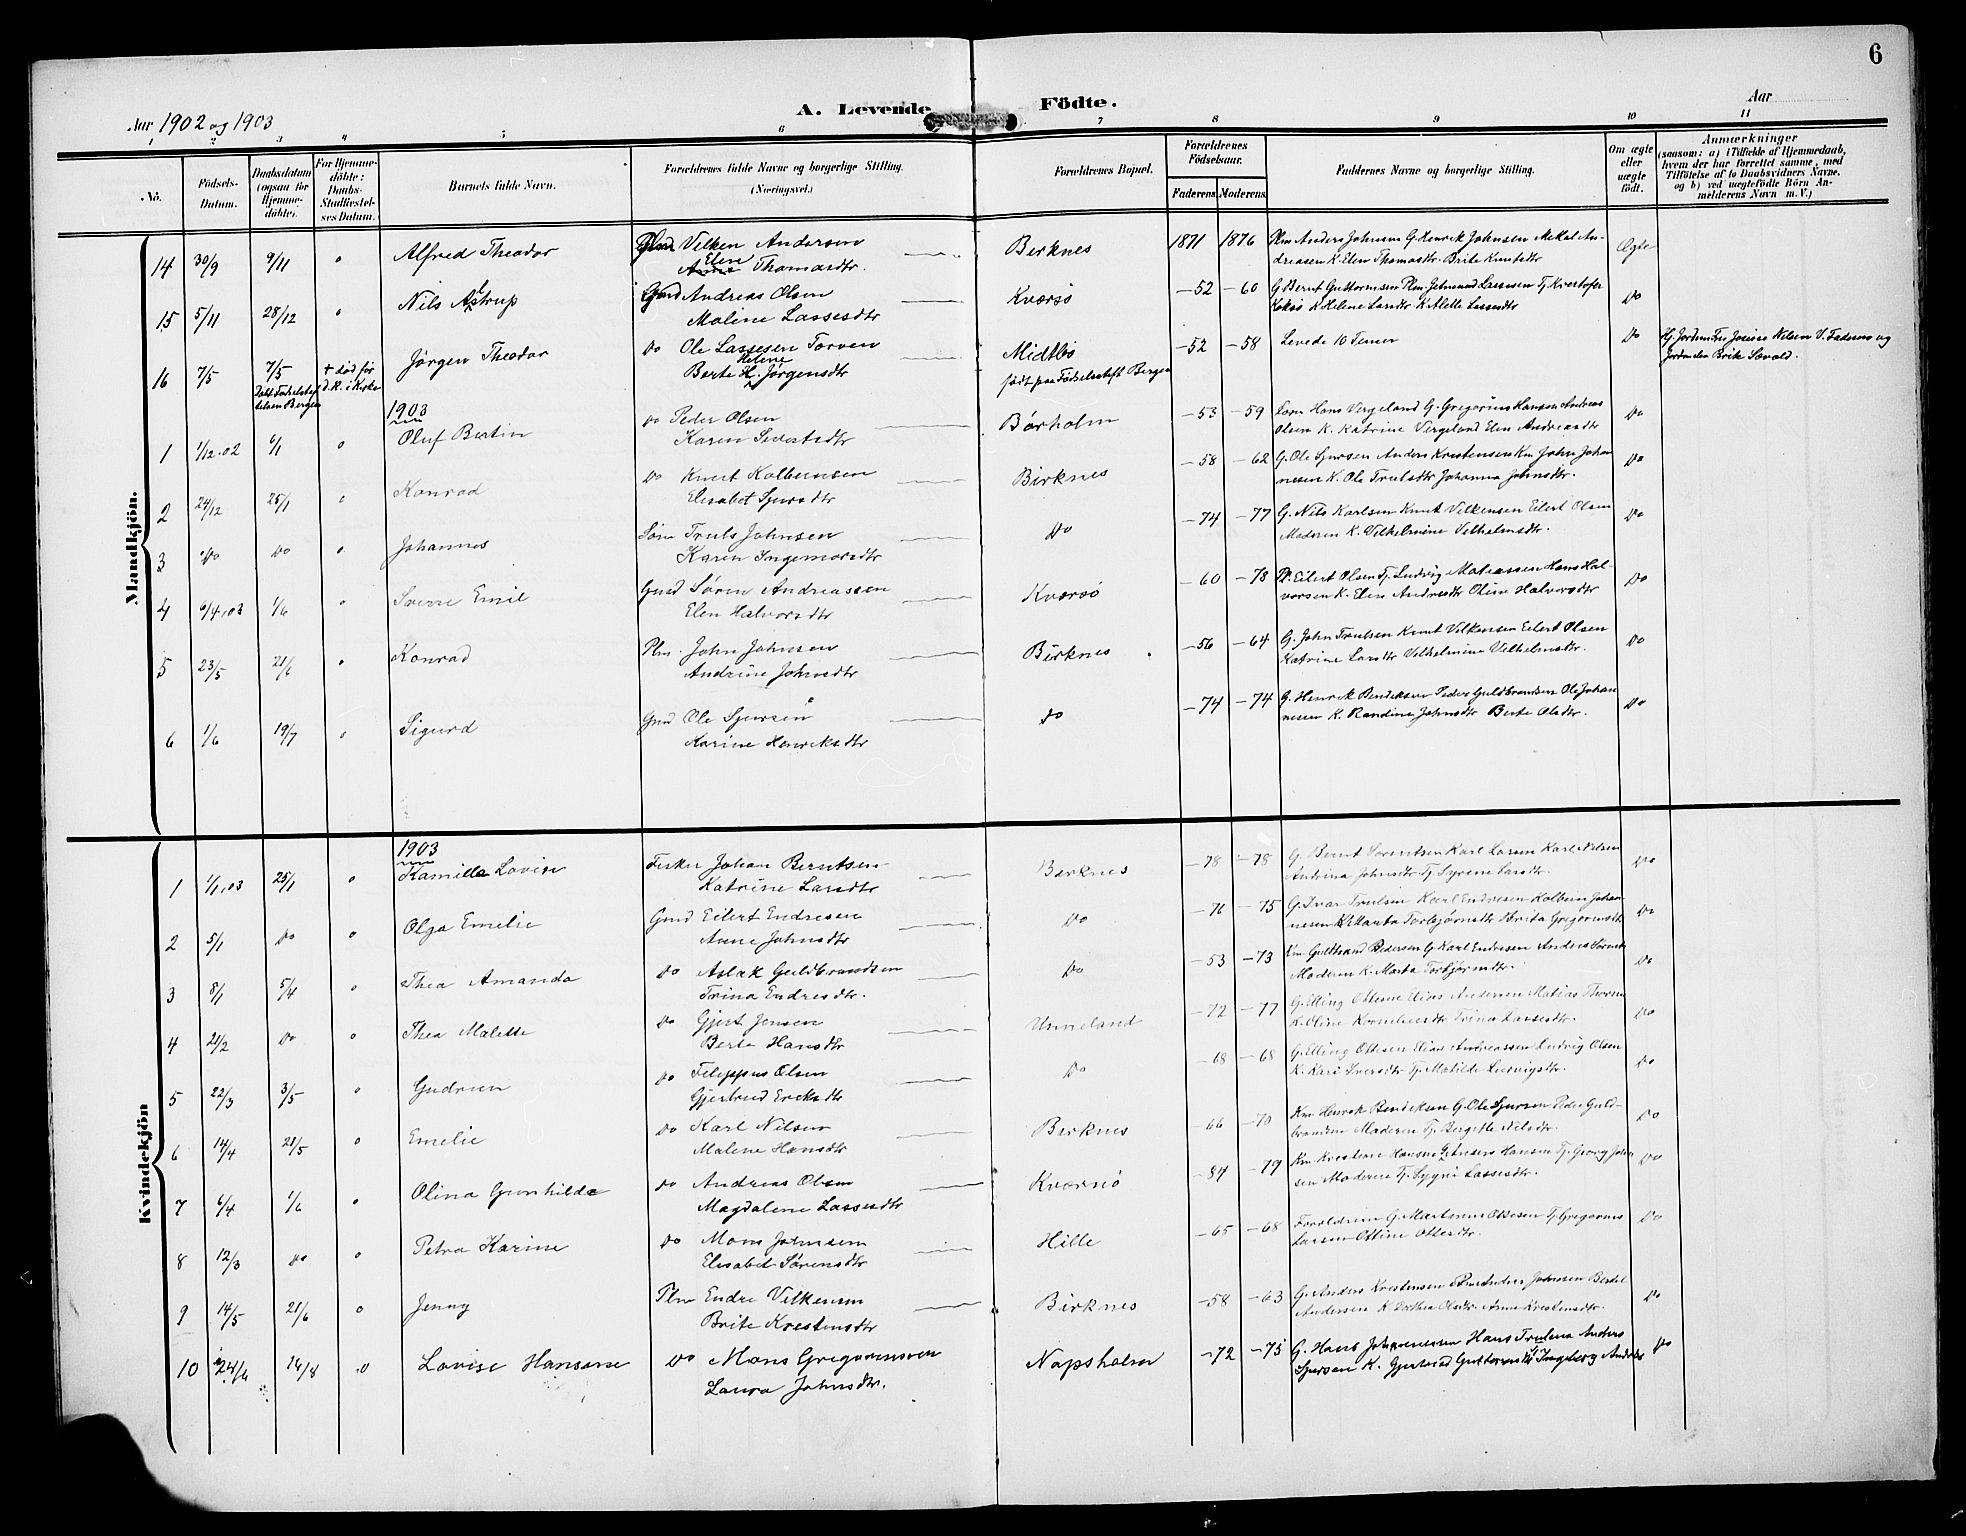 6
A. Levende Födte.
Aar 1902 og 1903
Aar
1 2 3 4 5 6 7 8 9 10 11
No.
Födsels-Datum.
Daabsdatum (ogsaa for Hjemmedöbte).
For Hjemmedöbte: Daabs-Stadfæstelses Datum.
Barnets fulde Navn.
Forældrenes fulde Navne og borgerlige Stilling. (Næringsvei.)
Forældrenes Bopæl.
Forældrenes Födselsaar.
Faderens. Moderens.
Faddernes Navne og borgerlige Stilling.
Om ægte eller uægte födt.
Anmærkninger
(saasom: a) i Tilfælde af Hjemmedaab, hvem der har forrettet samme, med Tilföielse af to Daabsvidners Navne. og b) ved uægtefödte Börn Anmelderens Navn m. V.)
Mandkjön.
14 30/9 9/11 " Alfred Theodor Gmd Velken Andersen Birknes 1871 1876 Plm Anders Johnsen G. Henrik Johnsen Mikal An- Ægte
Elen
Anne Thomasdtr. dreasen K. Elen Thomasdtr. Brite Knutsdtr
15 5/11 28/12 " Nils Astrup Gmd Andreas Olsen Kværsø -52 -60 G Bernt Guttormsen Do
Maline Lassesdtr K Helene Larsdtr K Alette Lassesdtr
16 7/5 7/5 + død før d. K. i Kirke Jørgen Theodor Do Ole Lassesen Torven Midtbø -52 -58 Levede 10 Timer Do
Helene
Berte H. Jørgensdtr født paa Fødselsstift Bergen
1903
1 1/12.02 6/1 " Oluf Bertin Do Peder Olsen Børholm -53 -59 Hans Vergeland G. Gregorius Hansen Andreas Do
Karen Sivertsdtr Olsen K. Katrine Vergeland Elen Andreasdtr
2 24/12 25/1 " Konrad Do Knut Kolbensen Birknes -58 -62 G. Ole Sjursen Anders Kristensen Km John Johan Do
Elisabet Sjursdtr nesen K. Ole Trulsdtr Johanna Johnsdtr.
3 Do Do " Johannes Truls Johnsen Do -74 -77 G. Nils Karlsen Knut Velkensen Eilert Olsen Do
Karen Ingemarsdtr Moderen K. Vilhelmine Vilhelmsdtr.
4 6/4.03 1/6 " Sverre Emil Gmd Søren Andreassen Kværsø -60 -78 Pl. Eilert Olsen Tj. Ludvig Matiassen Hans Hal- Do
Elen Halvorsdtr vorsen K. Elen Andresdtr Oline Halvorsdtr
5 23/5 21/6 " Konrad Plm. John Johnsen Birknes -56 -64 G. John Trulsen Knut Velkensen Eilert Olsen Do
Andrine Johnsdtr Katrine Larsdtr Vilhelmine Vilhelmsdtr.
6 1/6 19/7 " Sigurd Gmd Ole Sjursen Do -74 -74 G. Henrik Bendiksen Peder Guldbrandsen Ole Johan Do
Karine Henriksdtr nesen K. Randine Johnsdtr Berte Olsdtr.
Kvindekjön
1903
1 1/1.03 25/1 " Kamilla Lovise Fisker Johan Berntsen Birknes -78 -78 G. Bernt Karl Larsen Karl Nilsen Do
Katrine Larsdtr Andrina Johnsdtr Tj. Syrene Larsdtr.
2 5/1 Do " Olga Emelie Gmd Eilert Endresen Do -76 -75 G. Ivar Trulsen Karl Endresen Kolbein Johan Do
Anne Johnsdtr nesen K. Marta Torbjørnsdtr Brita Gregoriusdtr
3 8/1 5/4 " Thea Amanda Do Aslak Guldbrandsen Do -53 -73 Km. Guldbrand Pedersen G. Karl Endresen Anders Do
Trina Endresdtr. Moderen K. Marta Torbjørnsdtr.
4 21/2 Do " Thea Malette Do Gjert Jensen Unneland -72 -77 G. Elling Ottesen Elias Andersen Matias Do
Berte Hansdtr K. Oline Korneliusdtr Trina Lassesdtr.
5 22/3 3/5 " Gudrun Do Filippus Olsen Do -68 -68 G. Elling Ottesen Elias Andreassen Ludvig Olsen Do
Gjertrud Eriksdtr K. Kari Iversdtr Tj. Matilde Ludvigsdtr.
6 14/4 21/5 " Emelie Do Karl Nilsen Birknes -66 -70 Km Henrik Bendiksen G. Ole Sjursen Peder Guld- Do
Malene Hansdtr brandsen Moderen Tj. Bergitte Nilsdtr.
7 6/4 1/6 " Olina Gunhilda Do Andreas Olsen Kværsø -84 -79 Km Kristian Hansen Hansen Tj. Georg John Do
Magdalene Lassesdtr sen Moderen Tj. Lassesdtr.
8 12/3 Do " Petra Karine Do Mons Johnsen Hille -65 -68 Forældrene G. Martinus Ottesen Tj. Gregorius Do
Elisabet Sørensdtr Larsen Ottine Ottesdtr.
9 14/5 21/6 " Jenny Plm Endre Velkensen Birknes -58 -63 G. Anders Kristensen Plm Anders Johnsen Bertel Do
Brite Kristensdtr Andersen K. Dorthea Olsdtr. Anna Kristensdtr.
10 24/6 14/8 " Lovise Hansine Do Mons Gregoriussen Napsholm -72 -75 G. Hans Johannessen Hans Trulsen Anders Do
Laura Johnsdtr. Sjursen K. Gjertrud Guttormsdtr Ingeborg Andersdtr